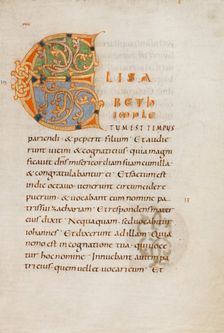 ELISA
BETH
imple
TUM EST TEMPUS
pariendi & peperit filium Et audie
runt uicini & cognati eius quia magni
ficauit dns misericordiam suam cum illa
& congratulabantur ei Et factum est
in die octauo uenerunt circumcidere
puerum & uocabant eum nomine pa
tris sui zachariam Et respondens mater
eius dixit Nequaquam sed uocabitur
iohannes Et dixerunt ad illam Quia
nemo est in cognatione tua qui uoce
tur hoc nomine Innuebant autem pa
tri eius quem uellet uocari eum Et